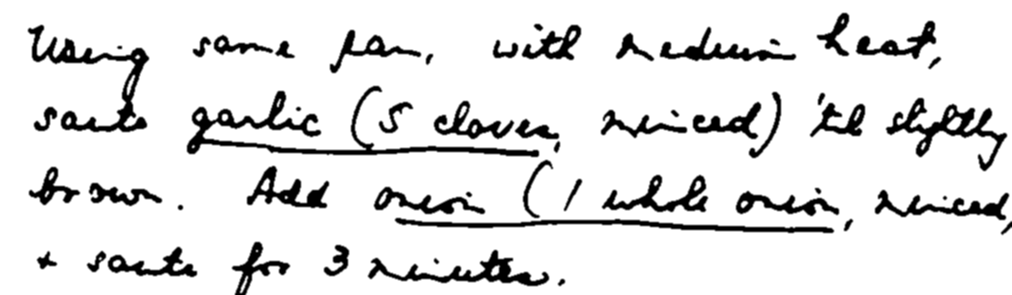 Using same pan, with medium heat,
saute garlic (5 cloves, minced) 'til slightly
brown. Add onion (1 whole onion, minced,
+ saute for 3 minutes.